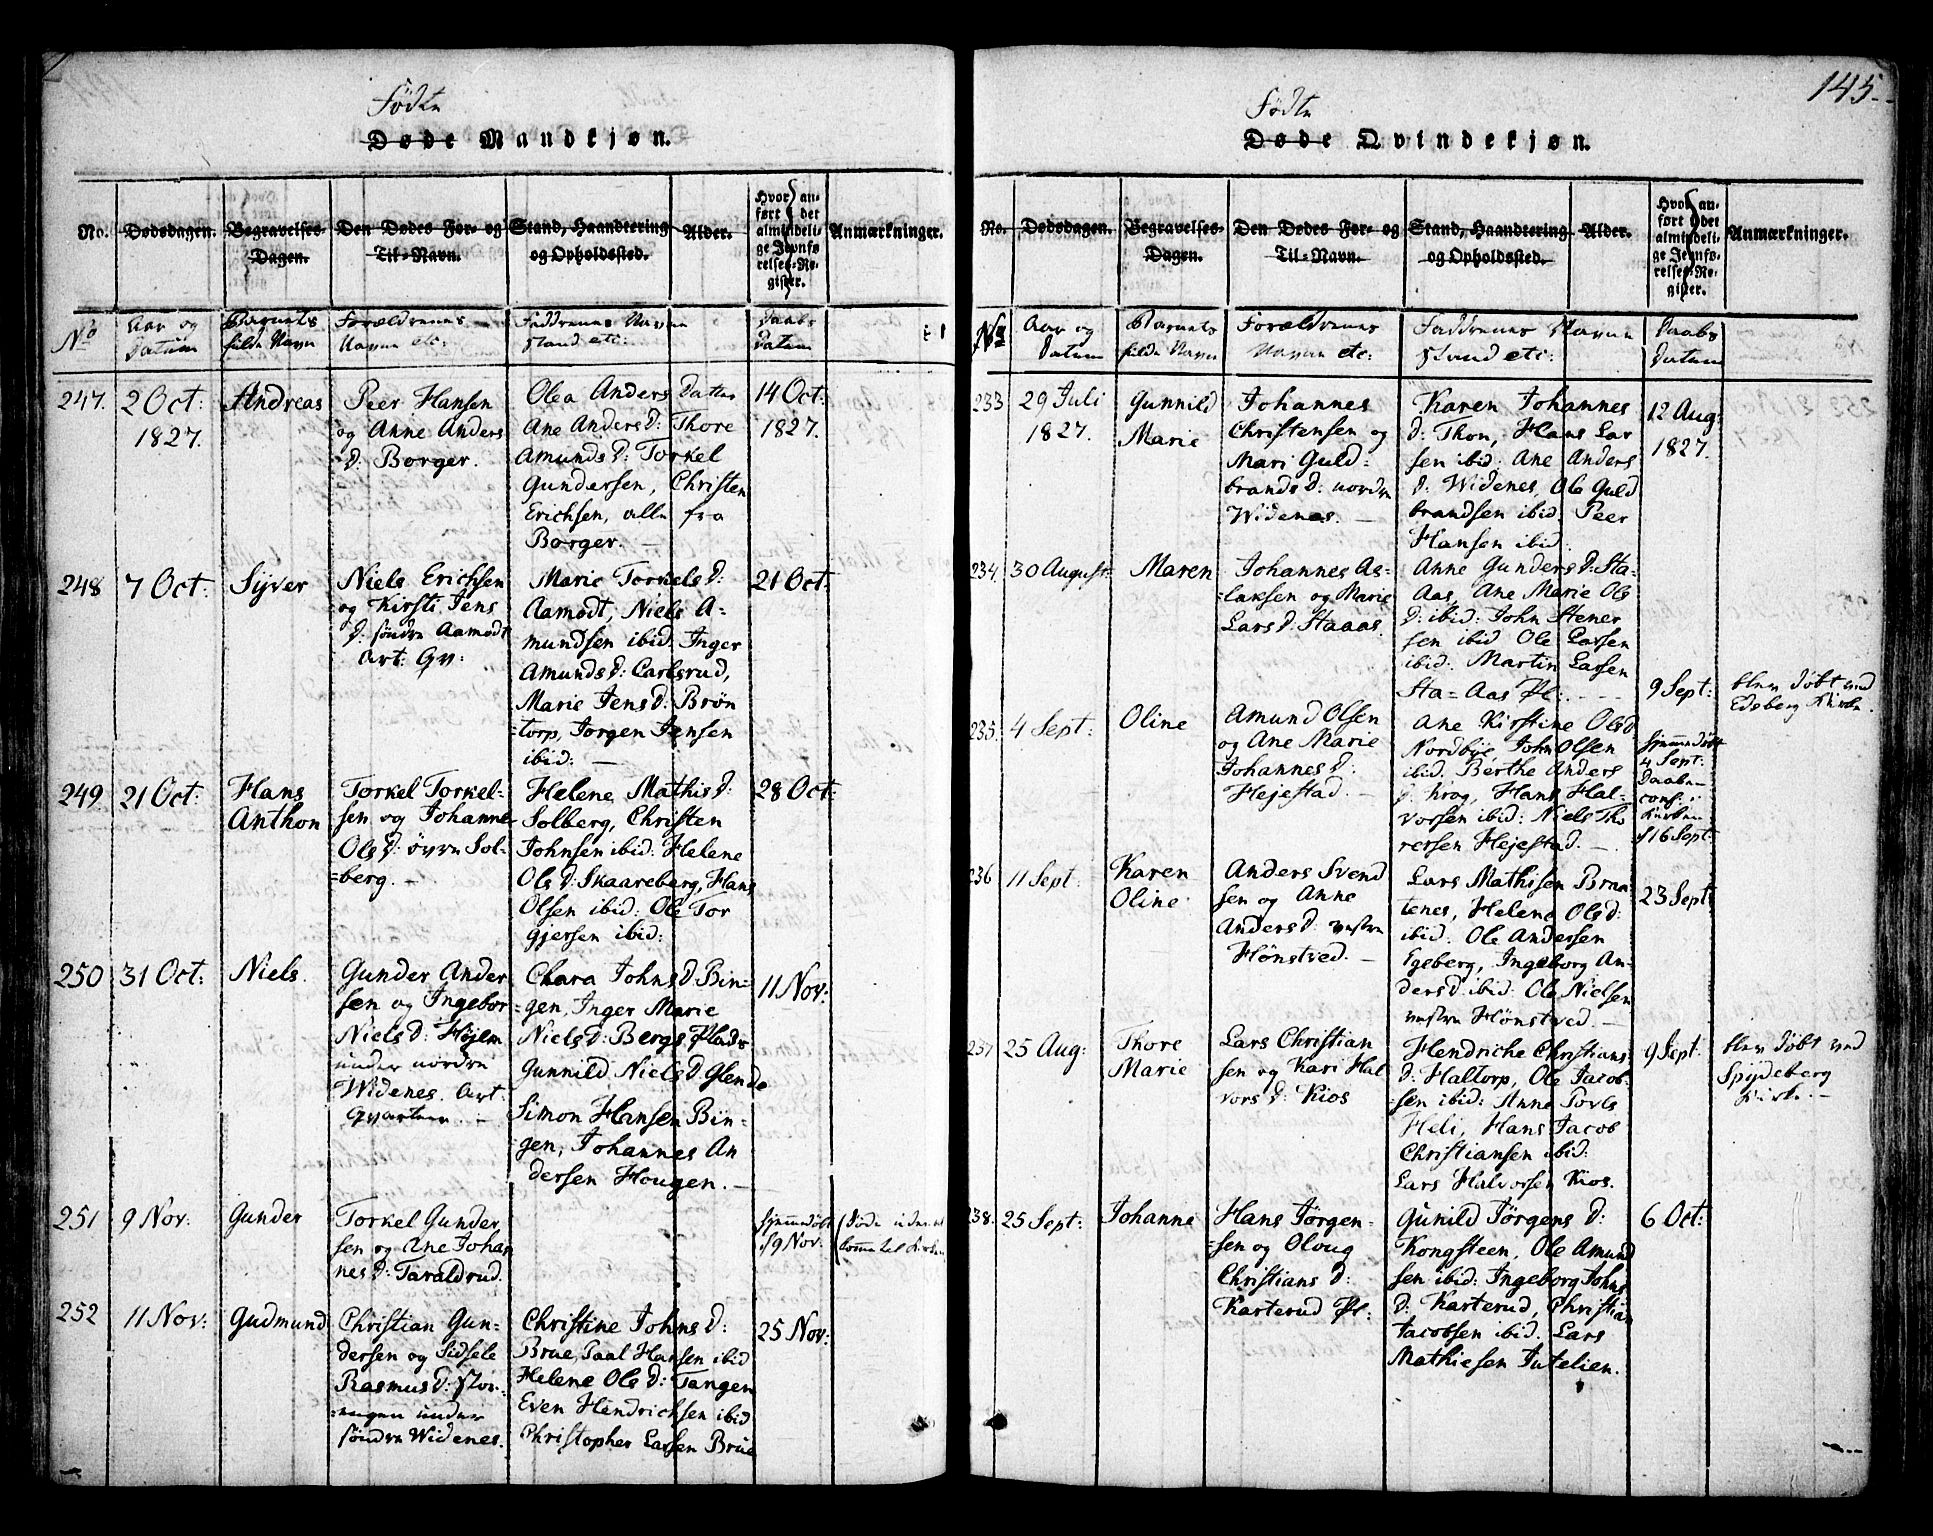 Fødte
Døde Mandkjøn.
No.
Dødsdagen.
Begravelses-
Dagen.
Den Dødes For- og
Til-Navn.
Stand, Haandtering
og Opholdssted.
Alder.
Hvor an-
ført i det
almindeli-
ge Jevnfø-
relses-Re-
gister.
Anmærkninger.
No
Aar og
Datum
Barnets
fulde Navn
Forældrenes
Navne etc:
Faddrenes Navne
Stand etc:
Daabs
Datum
247.
2 Oct:
1827.
Andreas
Peer Hansen
og Anne Anders
D: Borger.
Olea Anders Datter
Ane Anders D: Thore
Amunds D: Torkel
Gundersen, Christen
Erichsen, alle fra
Borger. —
14 Oct:
1827.
248
7 Oct:
Syver
Niels Erichsen
og Kirsti Jens
D: søndre Aamodt
Art: Qv:
Marie Torkels D:
Aamodt, Niels A-
mundsen ibid: Inger
Amunds D: Carlsrud,
Marie Jens D: Brøn
=torp, Jørgen Jensen
ibid: —
21 Oct:
249.
21 Oct:
Hans
Anthon
Torkel Torkel-
sen og Johanne
Ols D: øvre Sol-
=berg. —
Helene Mathis D:
Solberg, Christen
Johnsen ibid: Helene
Ols D: Skaareberg, Hans
Olsen ibid: Ole Tor
gjersen ibid:
28 Oct:
250
31 Oct:
Niels.
Gunder Ander
sen og Ingebor
Niels D: Højem
under nordre
Widenes. Art:
Qvarteer. —
Chara Johns D: Bin-
=gen, Inger Marie
Niels D: Bergs Plads
Gunnild Niels D: Glende
Simon Hansen Bin-
=gen, Johannes An
dersen Hougen. —
11 Nov:
251
9 Nov:
Gunder
Torkel Gunder,
sen og Ane Johan
nes D: Taraldrud.
hjemmedøbt
d 9 Nov:
(Døde uden at
komme til Kirken
252
11 Nov:
Gudmund
Christian Gun-
dersen og Sidsele
Rasmus D: Stor-
=engen under
søndre Widenes.
Christine Johns D:
Brue, Paal Hansen ibid
Helene Ols D: Tangen
Even Hendrichsen ibid
Christopher Larsen Brue
25 Nov:
145.
Fødte
Døde Qvindekjøn.
No.
Dødsdagen.
Begravelses-
Dagen.
Den Dødes For- og
Til-Navn.
Stand, Haandtering
og Opholdssted.
Alder.
Hvor an-
ført i det
almindeli-
ge Jevnfø-
relses-Re-
gister.
Anmærkninger.
No
Aar og
Datum
Barnets
fulde Navn
Forældrenes
Navne etc:
Faddrenes Navne
Stand etc:
Daabs
Datum
233
29 Juli
1827.
Gunnild
Marie
Johannes
Christensen og
Mari Guld-
brands D: nordre
Widenes. —
Karen Johannes
D: Thon, Hans Lar
sen ibid: Ane Anders
D: Widenes, Ole Guld
brandsen ibid: Peer
Hansen ibid:
12 Aug:
1827.
234.
30 August:
Maren
Johannes As-
=laksen og Marie
Lars D: Staaas.
Anne Gunders D: Sta-
Aas, Ane Marie Ols
D: ibid: John Stener
sen ibid Ole Larsen
ibid: Martin Larsen
Sta=Aas Pl:
9 Sept:
blev døbt ved
Edsberg Kirke.
235.
4 Sept:
Oline
Amund Olsen
og Ane Marie
Johannes D:
Hejestad. —
Ane Kirstine Ols D:
Nordbye, John Olsen
ibid. Berthe Anders
D: krog, Hans Hal-
vorsen ibid: Niels Tho
rersen Hejestad. —
hjemmedøbt
4 Sept:
Daaben
conf: i
Kirken
d 16 Sept:
236
11 Sept:
Karen
Oline
Anders Svend
sen og Anne
Anders D: vestre
Hønstved. —
Lars Mathisen Braa
tenes, Helene Ols D:
ibid: Ole Andersen
Egeberg, Ingeborg An-
ders D: ibid: Ole Nielsen
vestre Hønstved. —
23 Sept:
237
25 Aug:
Thore
Marie
Lars Christian
sen og Kari Hal
vors D: Kios
Hendriche Christians
D: Haltorp, Ole Jacob-
sen ibid: Anne Povls
Heli, Hans Jacob
Christiansen ibid:
Lars Halvorsen Kios.
9 Sept:
blev døbt ved
Spydeberg
Kirke. —
238.
25 Sept:
Johanne
Hans Jørgen-
=sen og Oloug
Christians D:
Karterud Pl:
Gunild Jørgens D:
Kongsteen, Ole Amund
sen ibid: Ingeborg Johns
D: Karterud, Christian
Jacobsen ibid. Lars
Mathiesen Jutelien.
6 Oct: